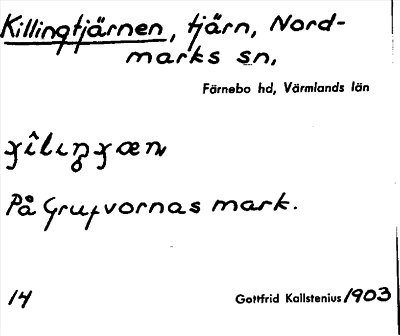 Killingtjärnen, tjärn, Nord-
marks sn.
Färnebo hd, Värmlands län
På Grufvornas mark.
14
Gottfrid Kallstenius 1903